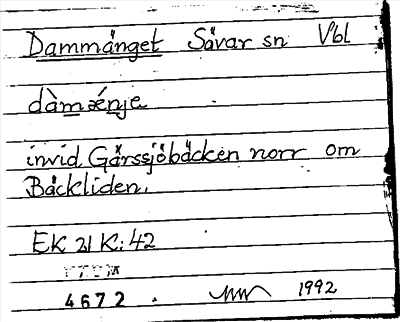 Dammänget Sävar sn Vbl
dàmǽnje
invid Gärssjöbäcken norr om
Bäckliden.
EK 21 K: 42
4672. 1992